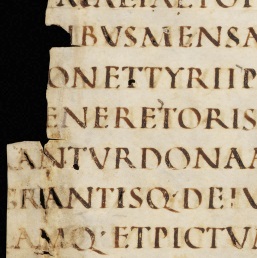 MALIAETOT
IBVSMENSA
ONETTYRIIP
ENERETORIS
ANTVRDONAA
GRANTISQ·DEIV
AMQ·ETPICTVM